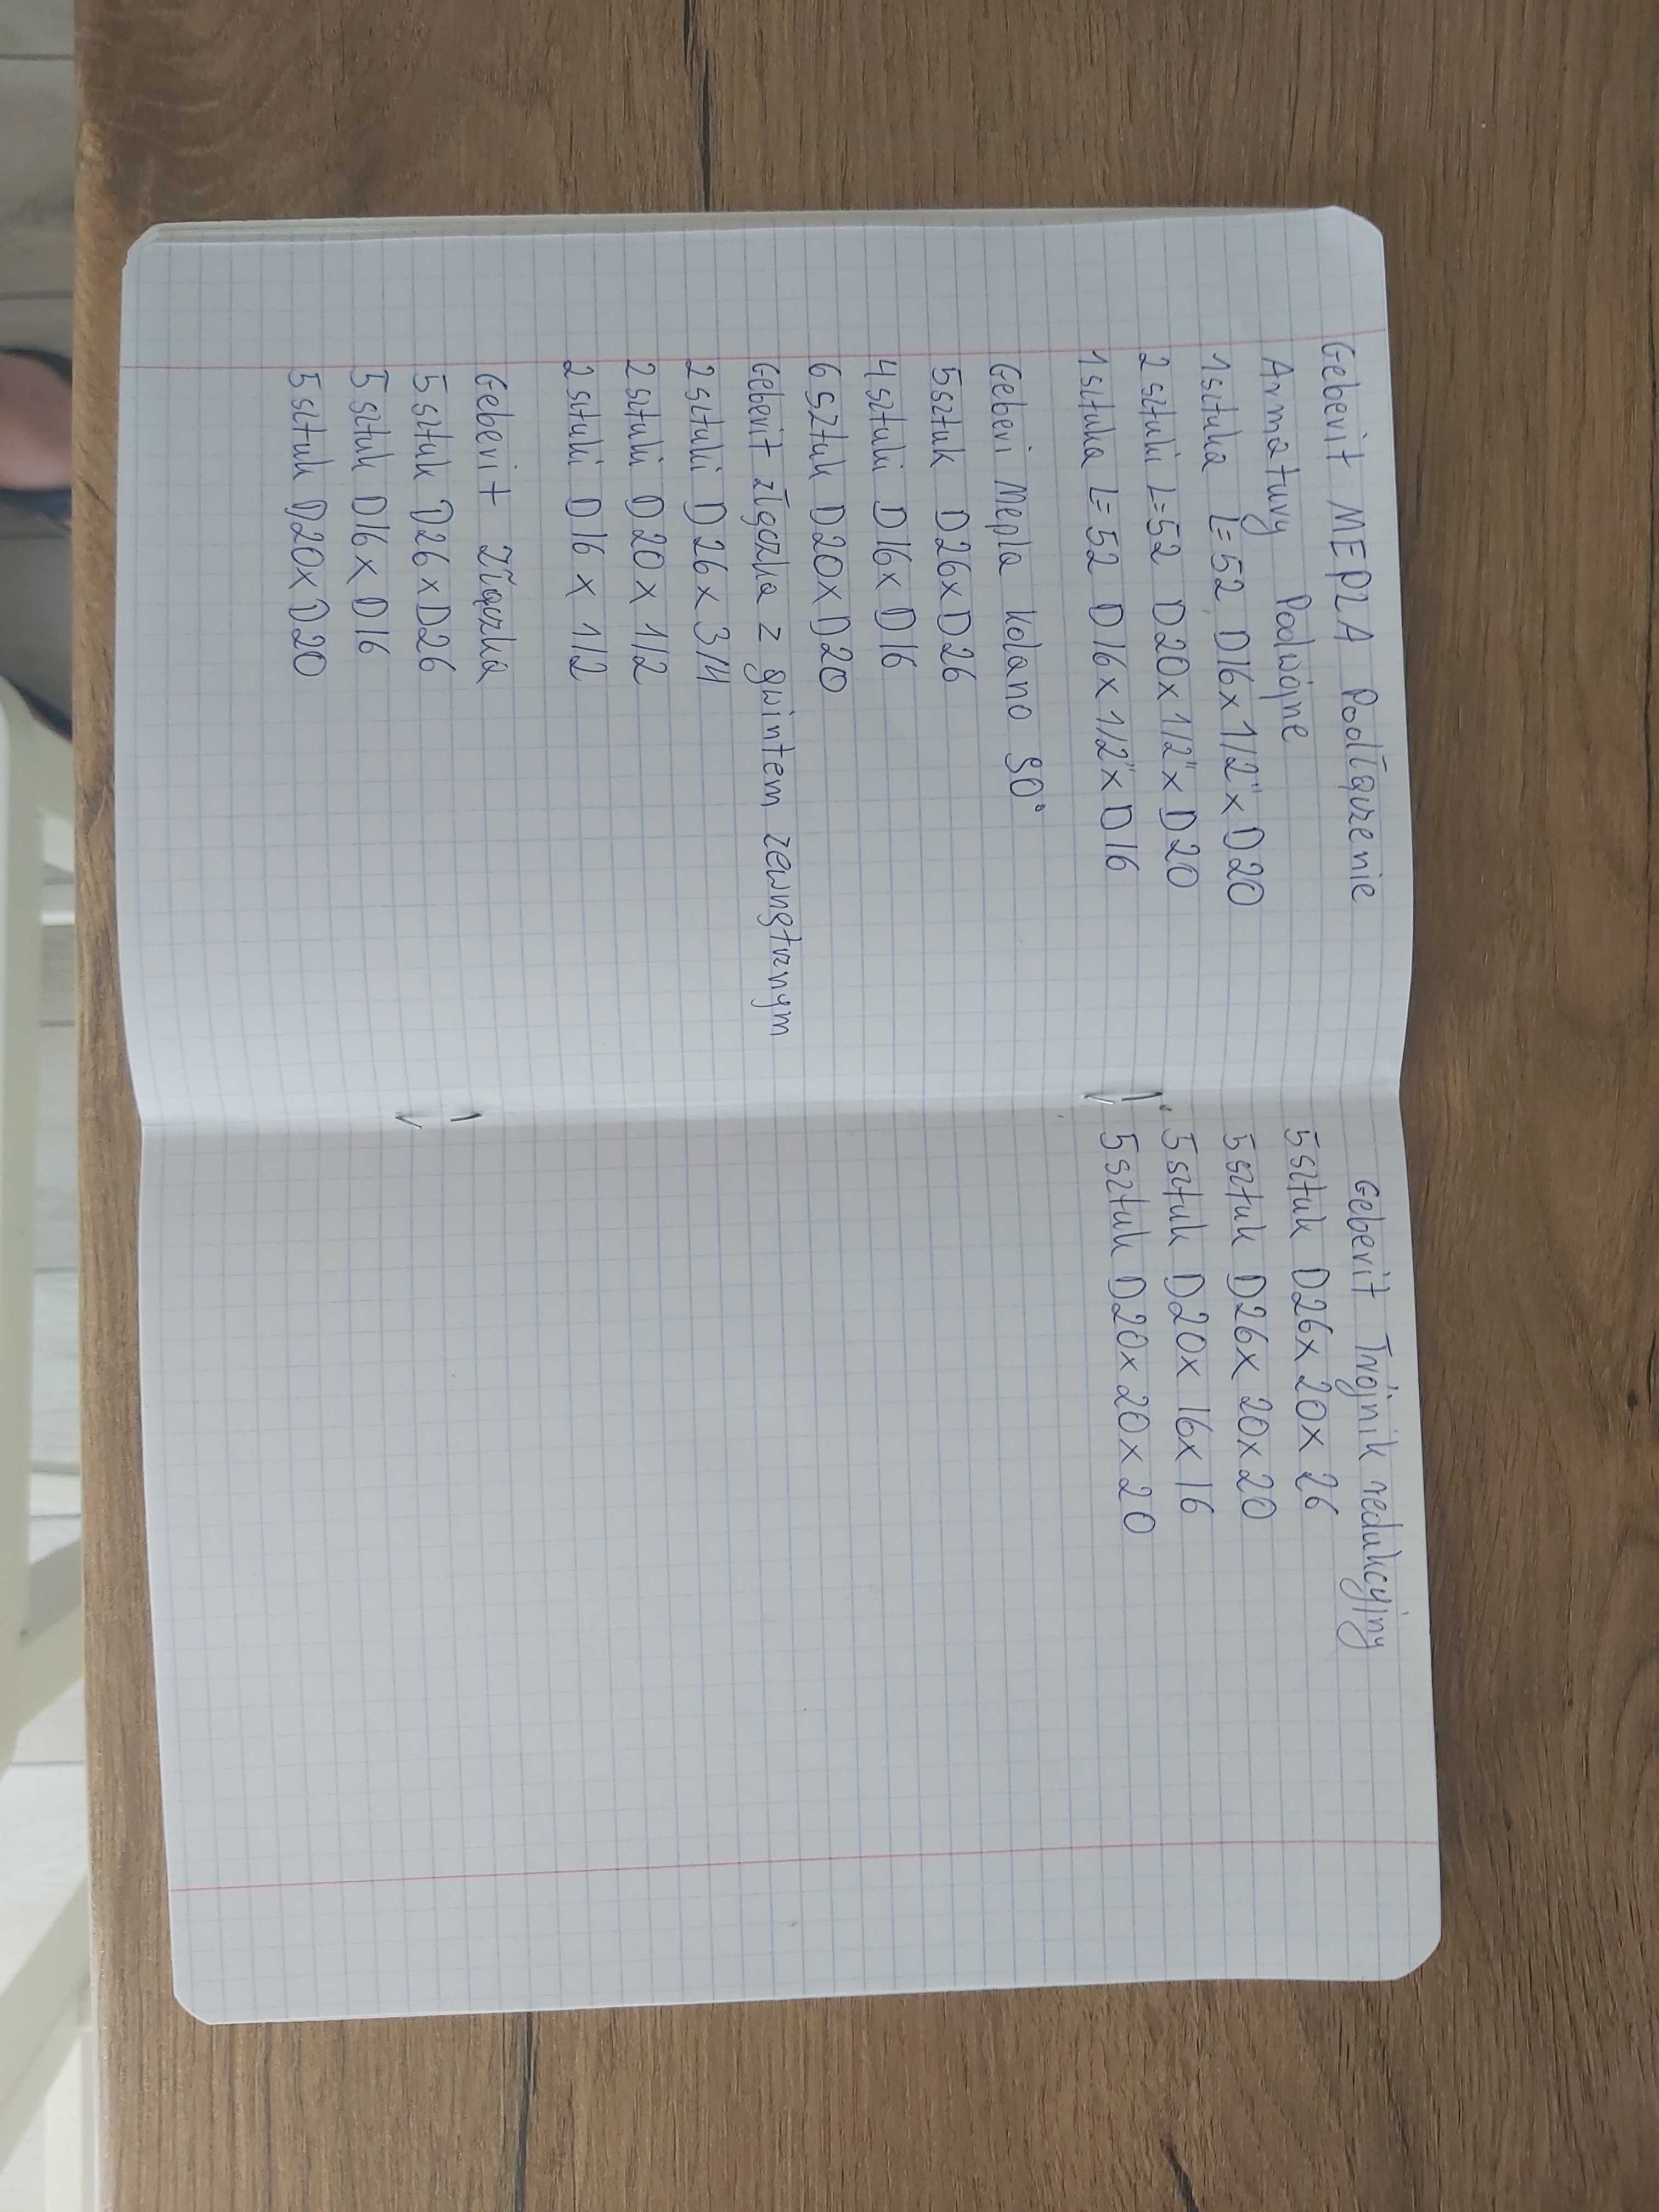 Geberit MEPLA Podłączenie
Armatury Podwójne
1 sztuka L=52, D16x1/2"xD20
2 sztuki L=52 D20x1/2"xD20
1 sztuka L=52 D16x1/2"xD16
Geberi Mepla kolano 90°
5 sztuk D26xD26
4 sztuki D16xD16
6 sztuk D20xD20
Geberit złączka z gwintem zewnętrznym
2 sztuki D26x3/4
2 sztuki D20x1/2
2 sztuki D16x1/2
Geberit Złączka
5 sztuk D26xD26
5 sztuk D16xD16
5 sztuk D20xD20
Geberit Trójnik redukcyjny
5 sztuk D26x20x26
5 sztuk D26x20x20
5 sztuk D20x16x16
5 sztuk D20x20x20